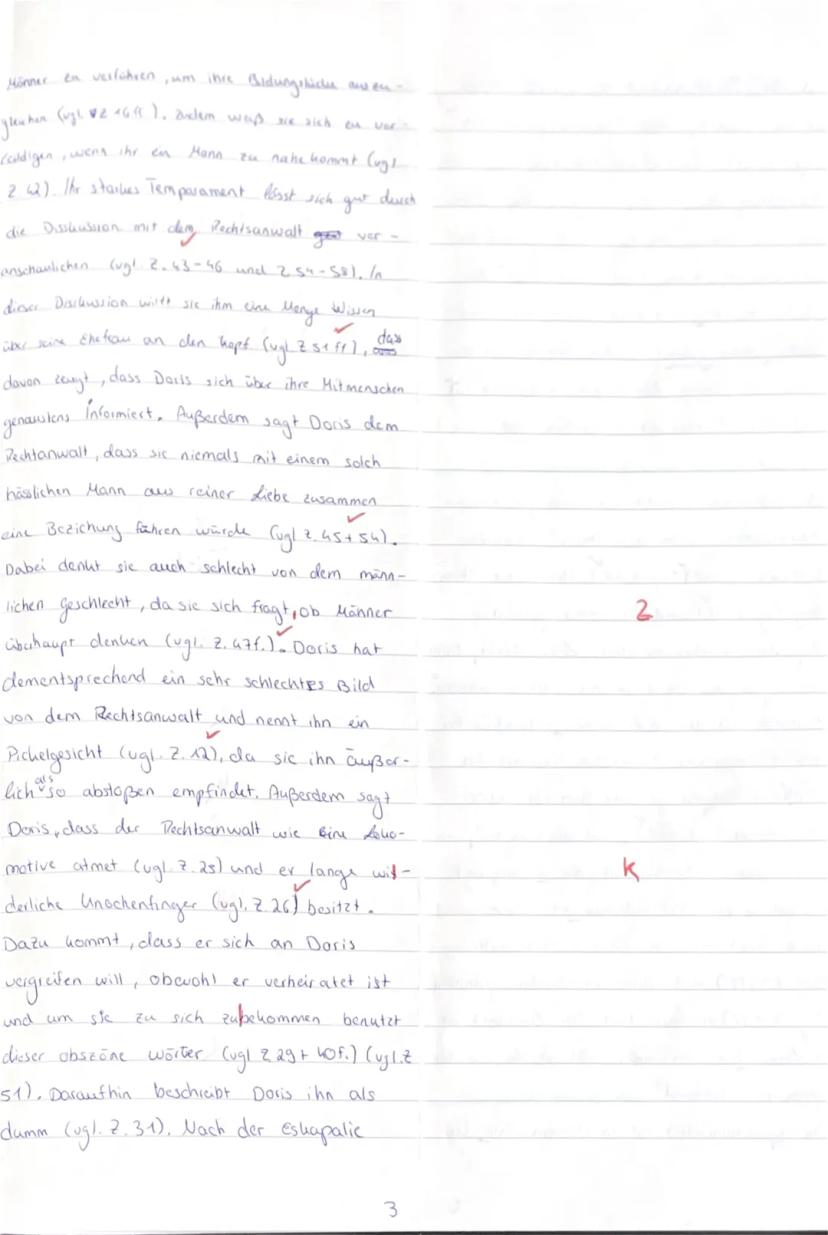 Männer zu verführen, um ihre Bildungslücke auszu-
gleichen (vgl. Z 16 ff). Zudem weiß sie sich zu ver-
teidigen, wenn ihr ein Mann zu nahe kommt (vgl
Z 42). Ihr starkes Temparament lässt sich gut durch
die Disskussion mit dem Rechtsanwalt ver-
anschaulichen (vgl Z. 43-46 und Z 54-58). In
dieser Diskussion wirft sie ihm eine Menge Wissen
über seine Ehefrau an den Kopf (vgl. Z 51 ff), das
davon zeugt, dass Doris sich über ihre Mitmenschen
genaustens informiert. Außerdem sagt Doris dem
Rechtanwalt, dass sie niemals mit einem solch
hässlichen Mann aus reiner Liebe zusammen
eine Beziehung führen würde (vgl Z. 45 + 54).
Dabei denkt sie auch schlecht von dem männ-
lichen Geschlecht, da sie sich fragt, ob Männer
2
überhaupt denken (vgl. Z. 47f.). Doris hat
dementsprechend ein sehr schlechtes Bild
von dem Rechtsanwalt und nennt ihn ein
Pickelgesicht (vgl. Z. 12), da sie ihn äußer-
lich als so abstoßen empfindet. Außerdem sagt
Doris, dass der Rechtsanwalt wie eine Loko-
motive atmet (vgl. Z. 25) und er lange wi-
K
derliche Knochenfinger (vgl. Z 26) besitzt.
Dazu kommt, dass er sich an Doris
vergreifen will, obwohl er verheiratet ist
und um sie zu sich zubekommen benutzt
dieser obszöne wörter (vgl Z 29 + 40f.) (vgl. Z
51). Daraufhin beschreibt Doris ihn als
dumm (vgl. Z. 31). Nach der Eskapalie
3